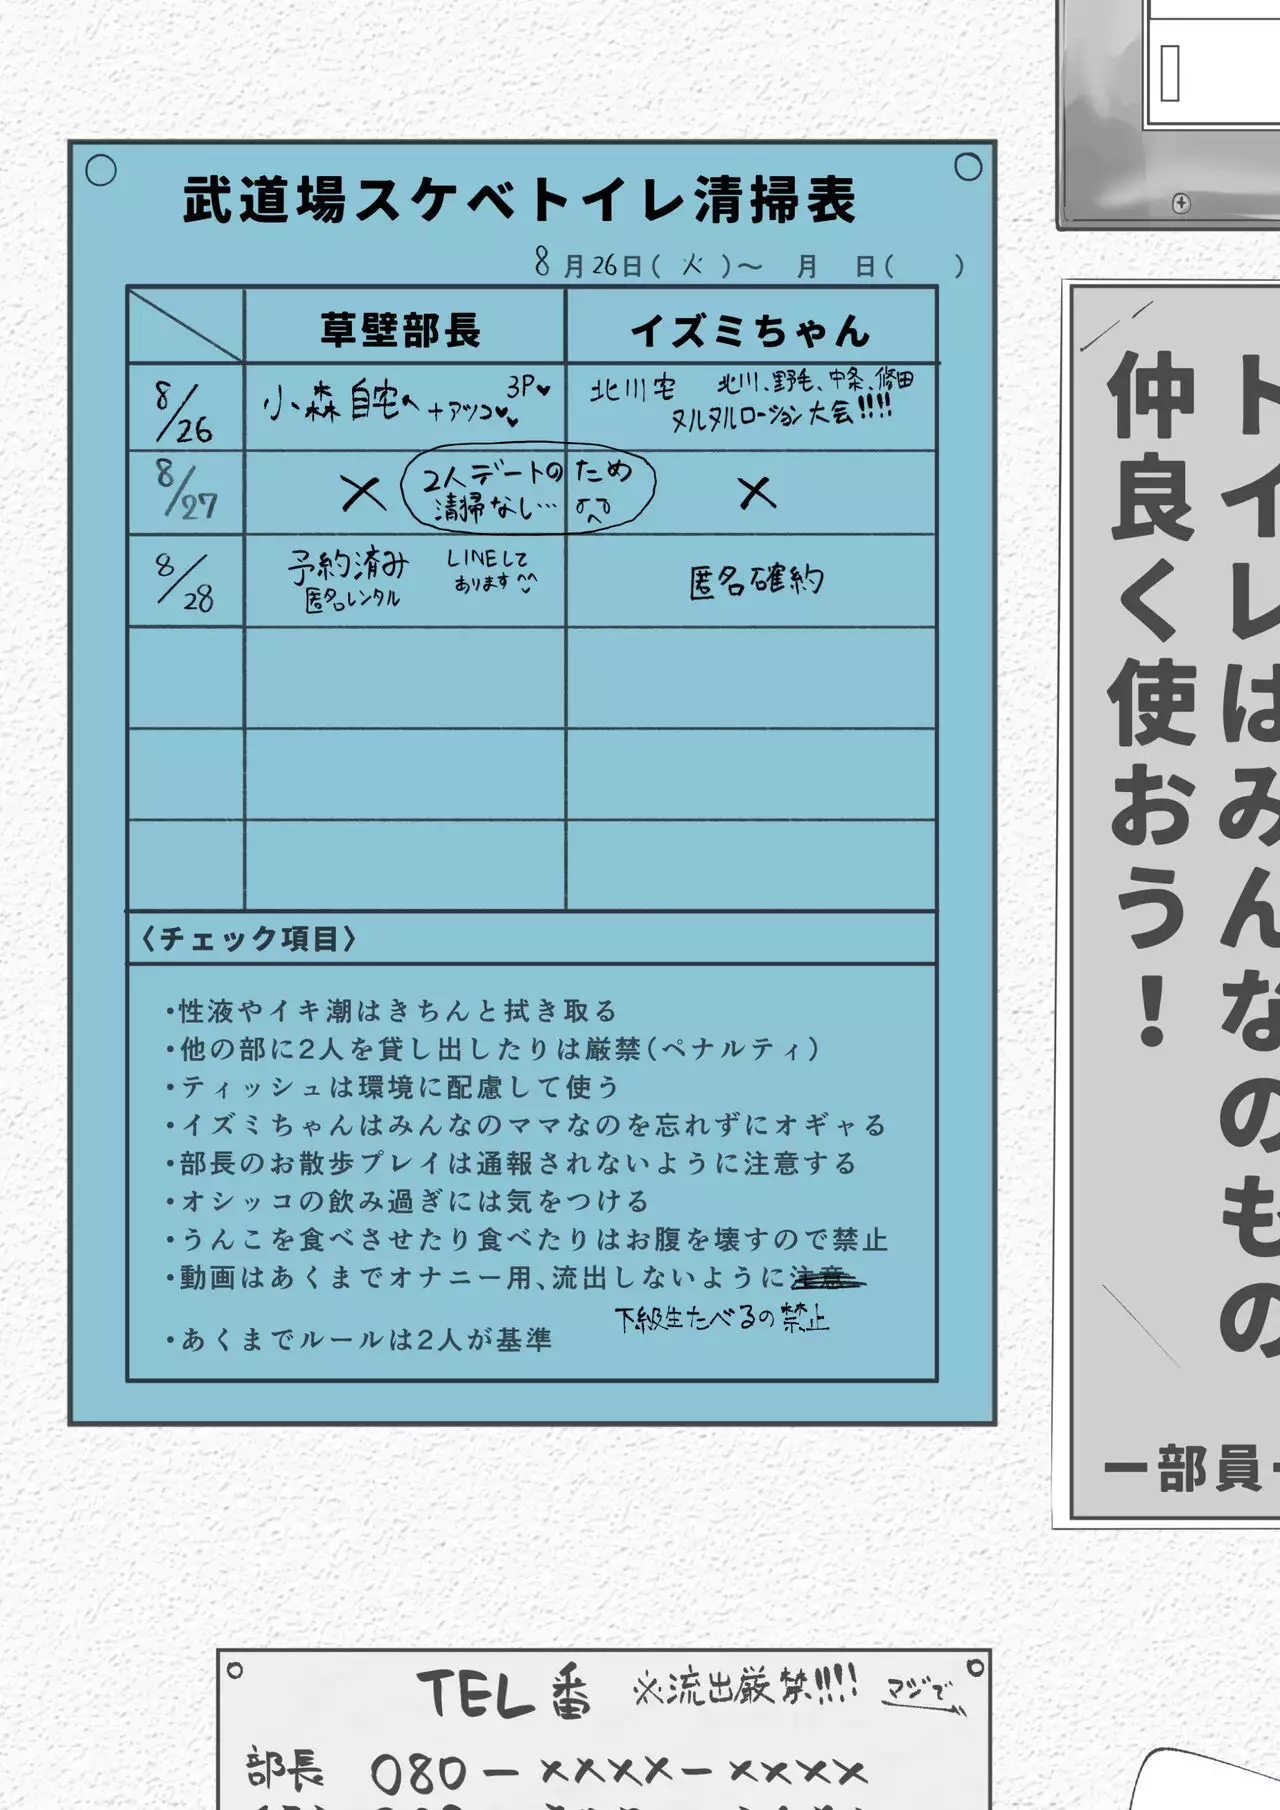 武道場スケベトイレ清掃表
8月26日(火)〜 月 日( )
草壁部長 イズミちゃん
8/26 小森自宅へ +アツコ♥♥ 3P♥ 北川宅 北川、野毛、中条、修田
ヌルヌルローション大会!!!!
8/27 × 2人デートのため ×
清掃なし…
8/28 予約済み LINEして 匿名確約
匿名レンタル あります^^
〈チェック項目〉
・性液やイキ潮はきちんと拭き取る
・他の部に2人を貸し出したりは厳禁(ペナルティ)
・ティッシュは環境に配慮して使う
・イズミちゃんはみんなのママなのを忘れずにオギャる
・部長のお散歩プレイは通報されないように注意する
・オシッコの飲み過ぎには気をつける
・うんこを食べさせたり食べたりはお腹を壊すので禁止
・動画はあくまでオナニー用、流出しないように注意
下級生たべるの禁止
・あくまでルールは2人が基準
トイレはみんなのもの
仲良く使おう!
ー部員
TEL番 ※流出厳禁!!!! マジで
部長 080-××××-××××